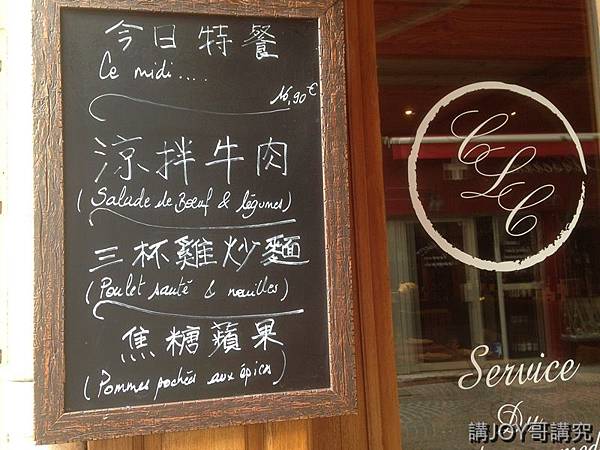 今日特餐
Ce midi....
16,90€
涼拌牛肉
(Salade de Bœuf & légumes)
三杯雞炒麵
(Poulet sauté & nouilles)
焦糖蘋果
(Pommes pochées aux épices)
CLC
Service
Du
講JOY哥講究